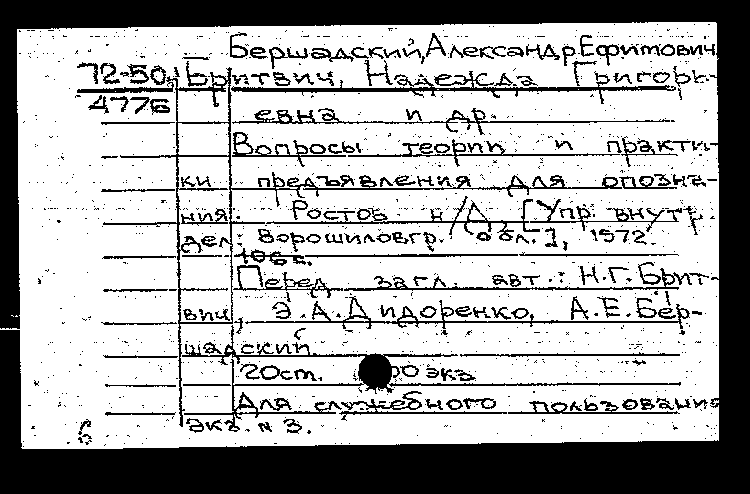 Бершадский, Александр Ефимович
72-50
4776
Бритвич, Надежда Григорь-
евна и др.
Вопросы теории и практи-
ки предъявления для опозна-
ния. Ростов н/Д, [Упр. внутр.
дел. Ворошиловгр. обл.], 1972.
106 с.
Перед загл. авт.: Н.Г. Брит-
вич, Э.А. Дидоренко, А.Е. Бер-
шадский.
20 см. экз
Для служебного пользования
Экз. № 3.
6